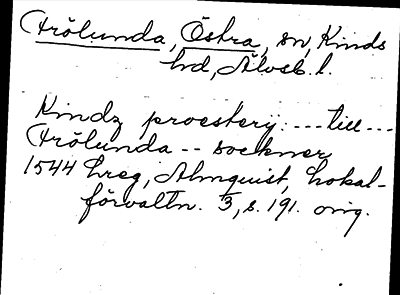 Frölunda, Östra, sn, Kinds
hd, Älvsb. l.
Kindz proestery: --- till ---
Frölunda -- sockner
1544 Lreg, Almquist, Lokal-
förvaltn. 3, s. 191. orig.